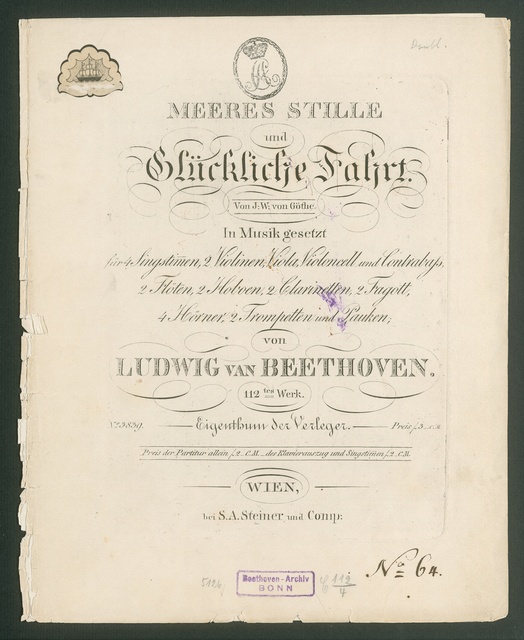 MEERES STILLE
und
Glückliche Fahrt.
Von J: W: von Göthe.
In Musik gesetzt
für 4 Singstim̅en, 2 Violinen, Viola, Violoncell und Contrabaſs,
2 Flöten, 2 Hoboen, 2 Clarinetten, 2 Fagott,
4 Hörner, 2 Trompetten und Pauken,
von
LUDWIG VAN BEETHOVEN.
112tes Werk.
No 3839. Eigenthum der Verleger. Preis f 5
Preis der Partitur allein f 2. C.M. des Klavierauszug und Singstim̅en f 2. C.M.
WIEN,
bei S. A. Steiner und Comp:
No 64.
Beethoven-Archiv
BONN